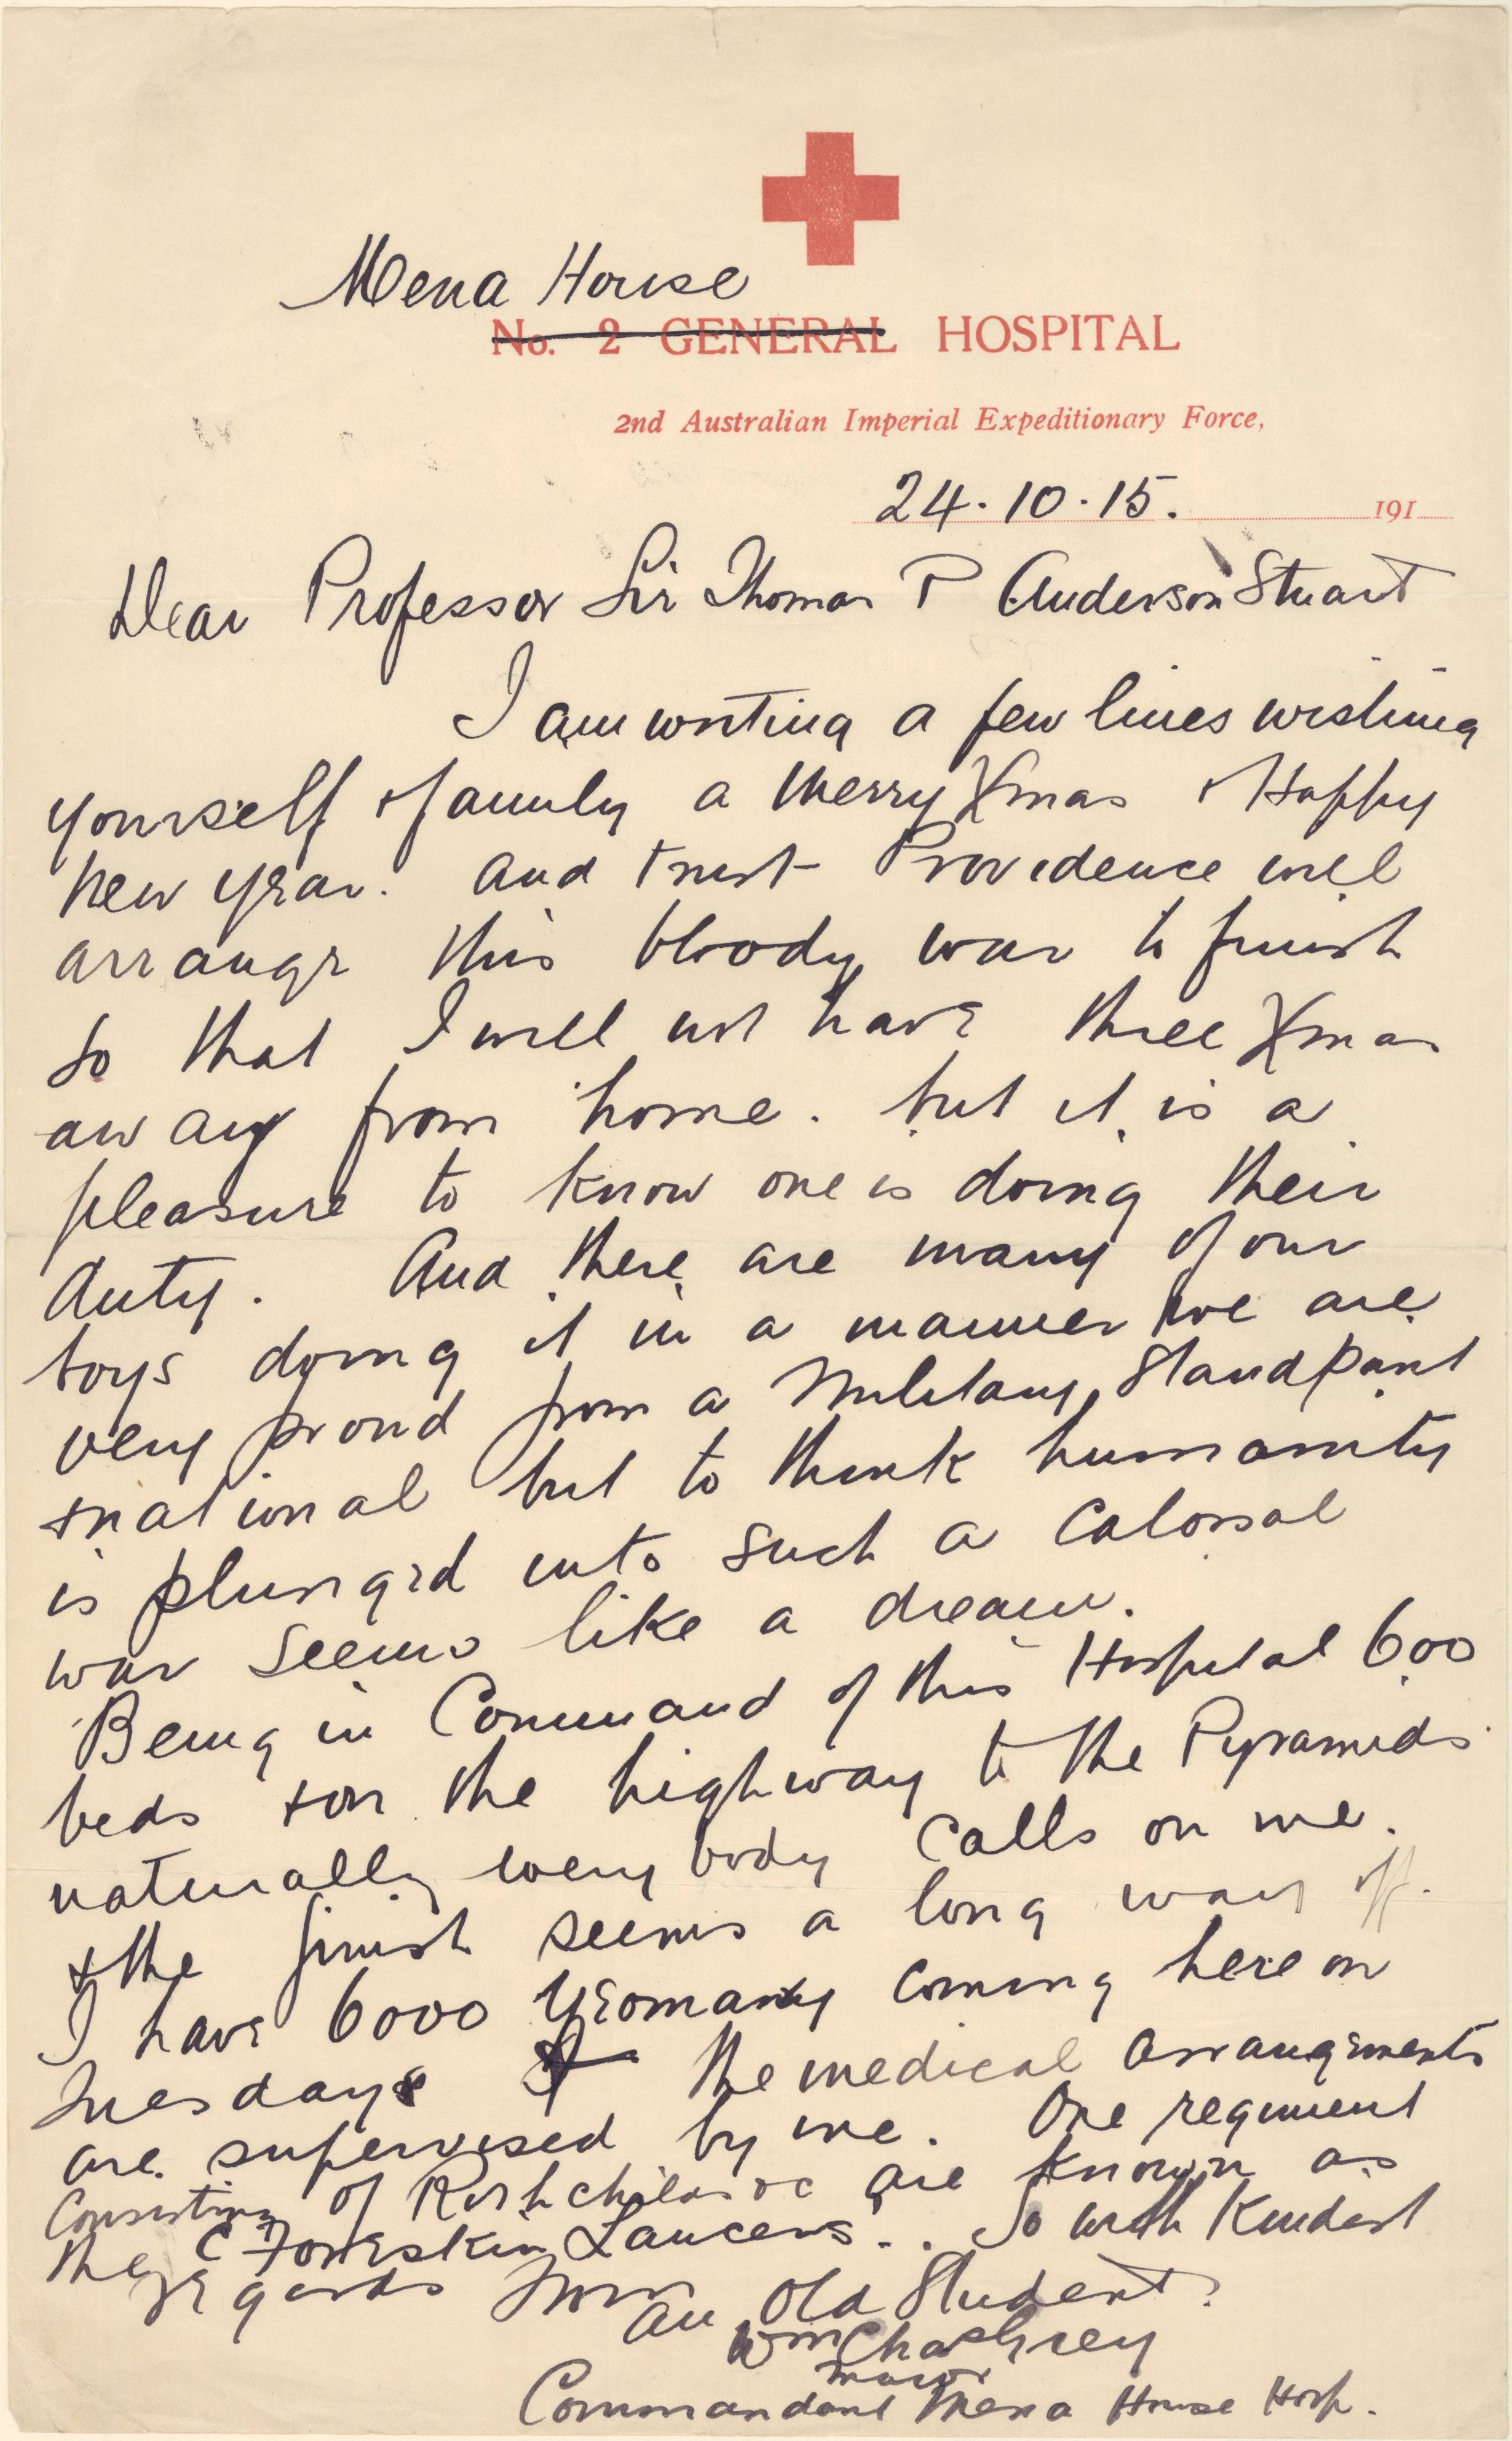 Mena House
No. 2 GENERAL HOSPITAL
2nd Australian Imperial Expeditionary Force,
24.10.15. 191
Dear Professor Sir Thomas P Anderson Stuart
I am writing a few lines wishing
yourself & family a Merry Xmas & Happy
New Year. And trust Providence will
arrange this bloody war to finish
so that I will not have three Xmas
away from home. but it is a
pleasure to know one is doing their
duty. And there are many of our
boys doing it in a manner we are
very proud from a military standpoint
& national but to think humanity
is plunged into such a Colossal
war seems like a dream.
Being in Command of this Hospital 600
beds & on the highway to the Pyramids
naturally every body calls on me.
& the finish seems a long way off.
I have 6000 Yeomanry coming here on
Tuesday & the medical arrangements
are supervised by me. One regiment
Consisting of are known as
the Foreskin Lancers.. So with Kindest
regards from
an Old Student
Wm Chas Grey
Major
Commandant Mena House Hosp.